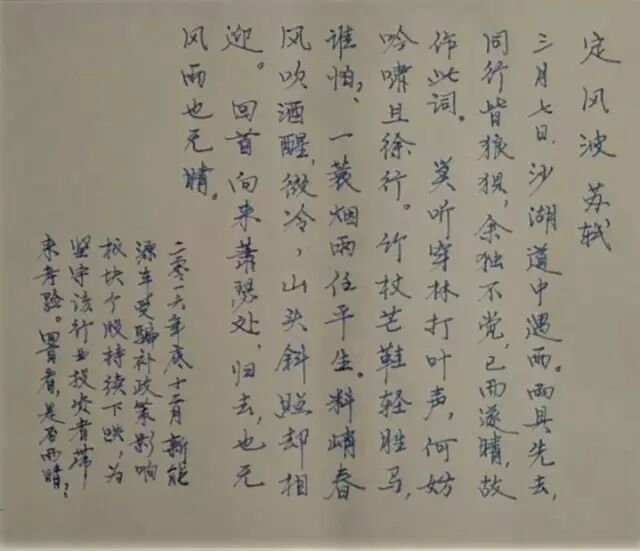 定风波 苏轼
三月七日,沙湖道中遇雨。雨具先去,
同行皆狼狈,余独不觉,已而遂晴,故
作此词。 莫听穿林打叶声,何妨
吟啸且徐行。竹杖芒鞋轻胜马,
谁怕?一蓑烟雨任平生。料峭春
风吹酒醒,微冷,山头斜照却相
迎。回首向来萧瑟处,归去,也无
风雨也无晴。
二零一六年底十二月新能
源车受骗补政策影响
板块个股持续下跌,为
坚守该行业投资者带
来考验。回首看,是否雨晴?